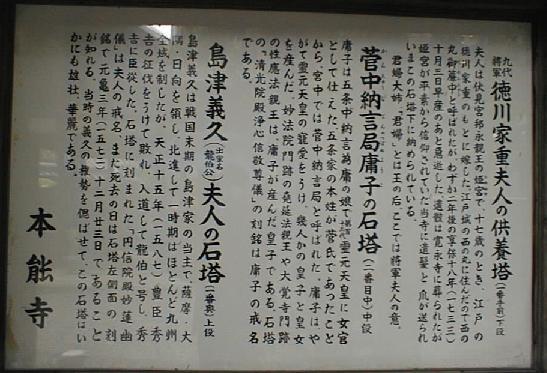 九代将軍 徳川家重夫人の供養塔(一番手前)下段
夫人は伏見宮邦永親王の姫宮で、十七歳のとき、江戸の
徳川家重のもとに嫁した。江戸城の西の丸に住んだので西の
丸御簾中と呼ばれたが、わずか二年後の享保十八年(一七三三)
十月三日早産のあと急逝した。遺骸は寛永寺に葬られたが
姫宮が平素から信仰されていた当寺に遺髪と爪が送られ
いまこの石塔下に納められている。
君婦大姉の「君婦」とは王の后、ここでは将軍夫人の意。
菅中納言局庸子の石塔(二番目中)中段
庸子は五条中納言為庸の娘で霊元天皇に女官
として仕えた。五条家の本姓が菅氏であったこと
から、宮中では菅中納言局と呼ばれた。庸子はや
がて霊元天皇の寵愛をうけ、幾人かの皇子と皇女
を産んだ。妙法院門跡の尭延法親王や大覚寺門跡
の性応法親王は、庸子が産んだ皇子である。石塔
の「清光院殿浄心信敬尊儀」の刻銘は庸子の戒名
である。
島津義久 出家名(龍伯公)夫人の石塔(一番奥)上段
島津義久は戦国末期の島津家の当主で、薩摩・大
隅・日向を領し、北進して一時期はほとんど九州
全域を制したが、天正十五年(一五八七)豊臣秀
吉の征伐をうけて敗れ、入道して龍伯と号し、秀
吉に臣従した。石塔に刻まれた「円信院殿妙蓮幽
儀」は夫人の戒名、また死去の日は石塔左側面の刻
銘で元亀三年(一五七二)十二月廿三日であること
が知れる。当時の義久の権勢を偲ばせて、この石塔はい
かにも雄壮、華麗である。
本能寺